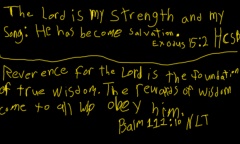 The Lord is my strength and my
song. He has become salvation.
Exodus 15:2 HCSB
Reverence for the Lord is the foundation
of true wisdom. The rewards of wisdom
come to all who obey him.
Psalm 111:10 NLT